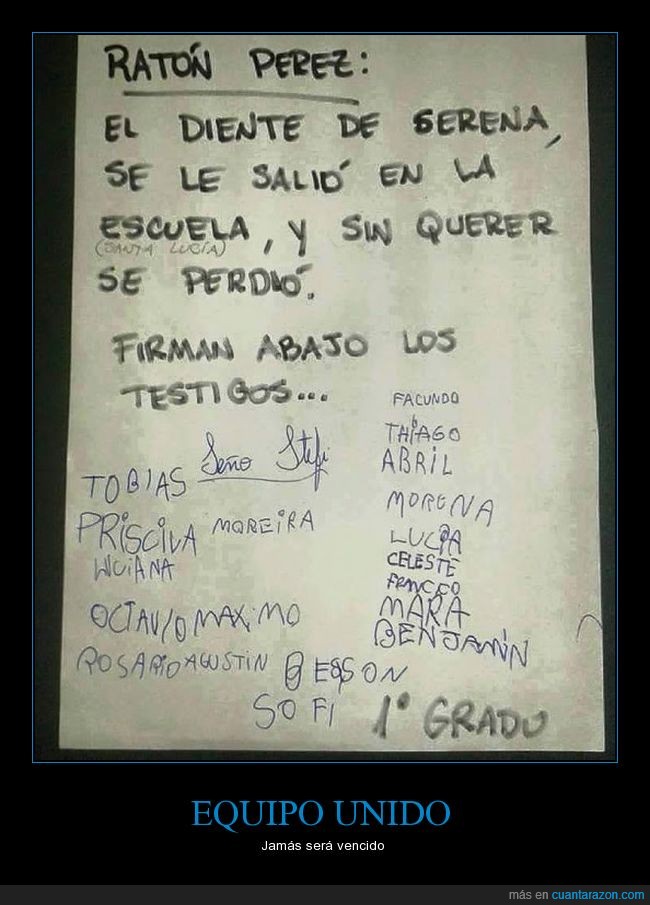 RATÓN PEREZ:
EL DIENTE DE SERENA,
SE LE SALIÓ EN LA
ESCUELA, Y SIN QUERER
(SANTA LUCÍA)
SE PERDIÓ.
FIRMAN ABAJO LOS
TESTIGOS...
FACUNDO
THIAGO
ABRIL
TOBIAS Seño Stefi
MORENA
PRISCILA MOREIRA
LUCIA
LUCIANA
CELESTE
FRANCCO
MARA
OCTAVIO MAXIMO
BENJAMÍN
ROSARIO AGUSTIN
SOFI
1° GRADO
EQUIPO UNIDO
Jamás será vencido
más en cuantarazon.com